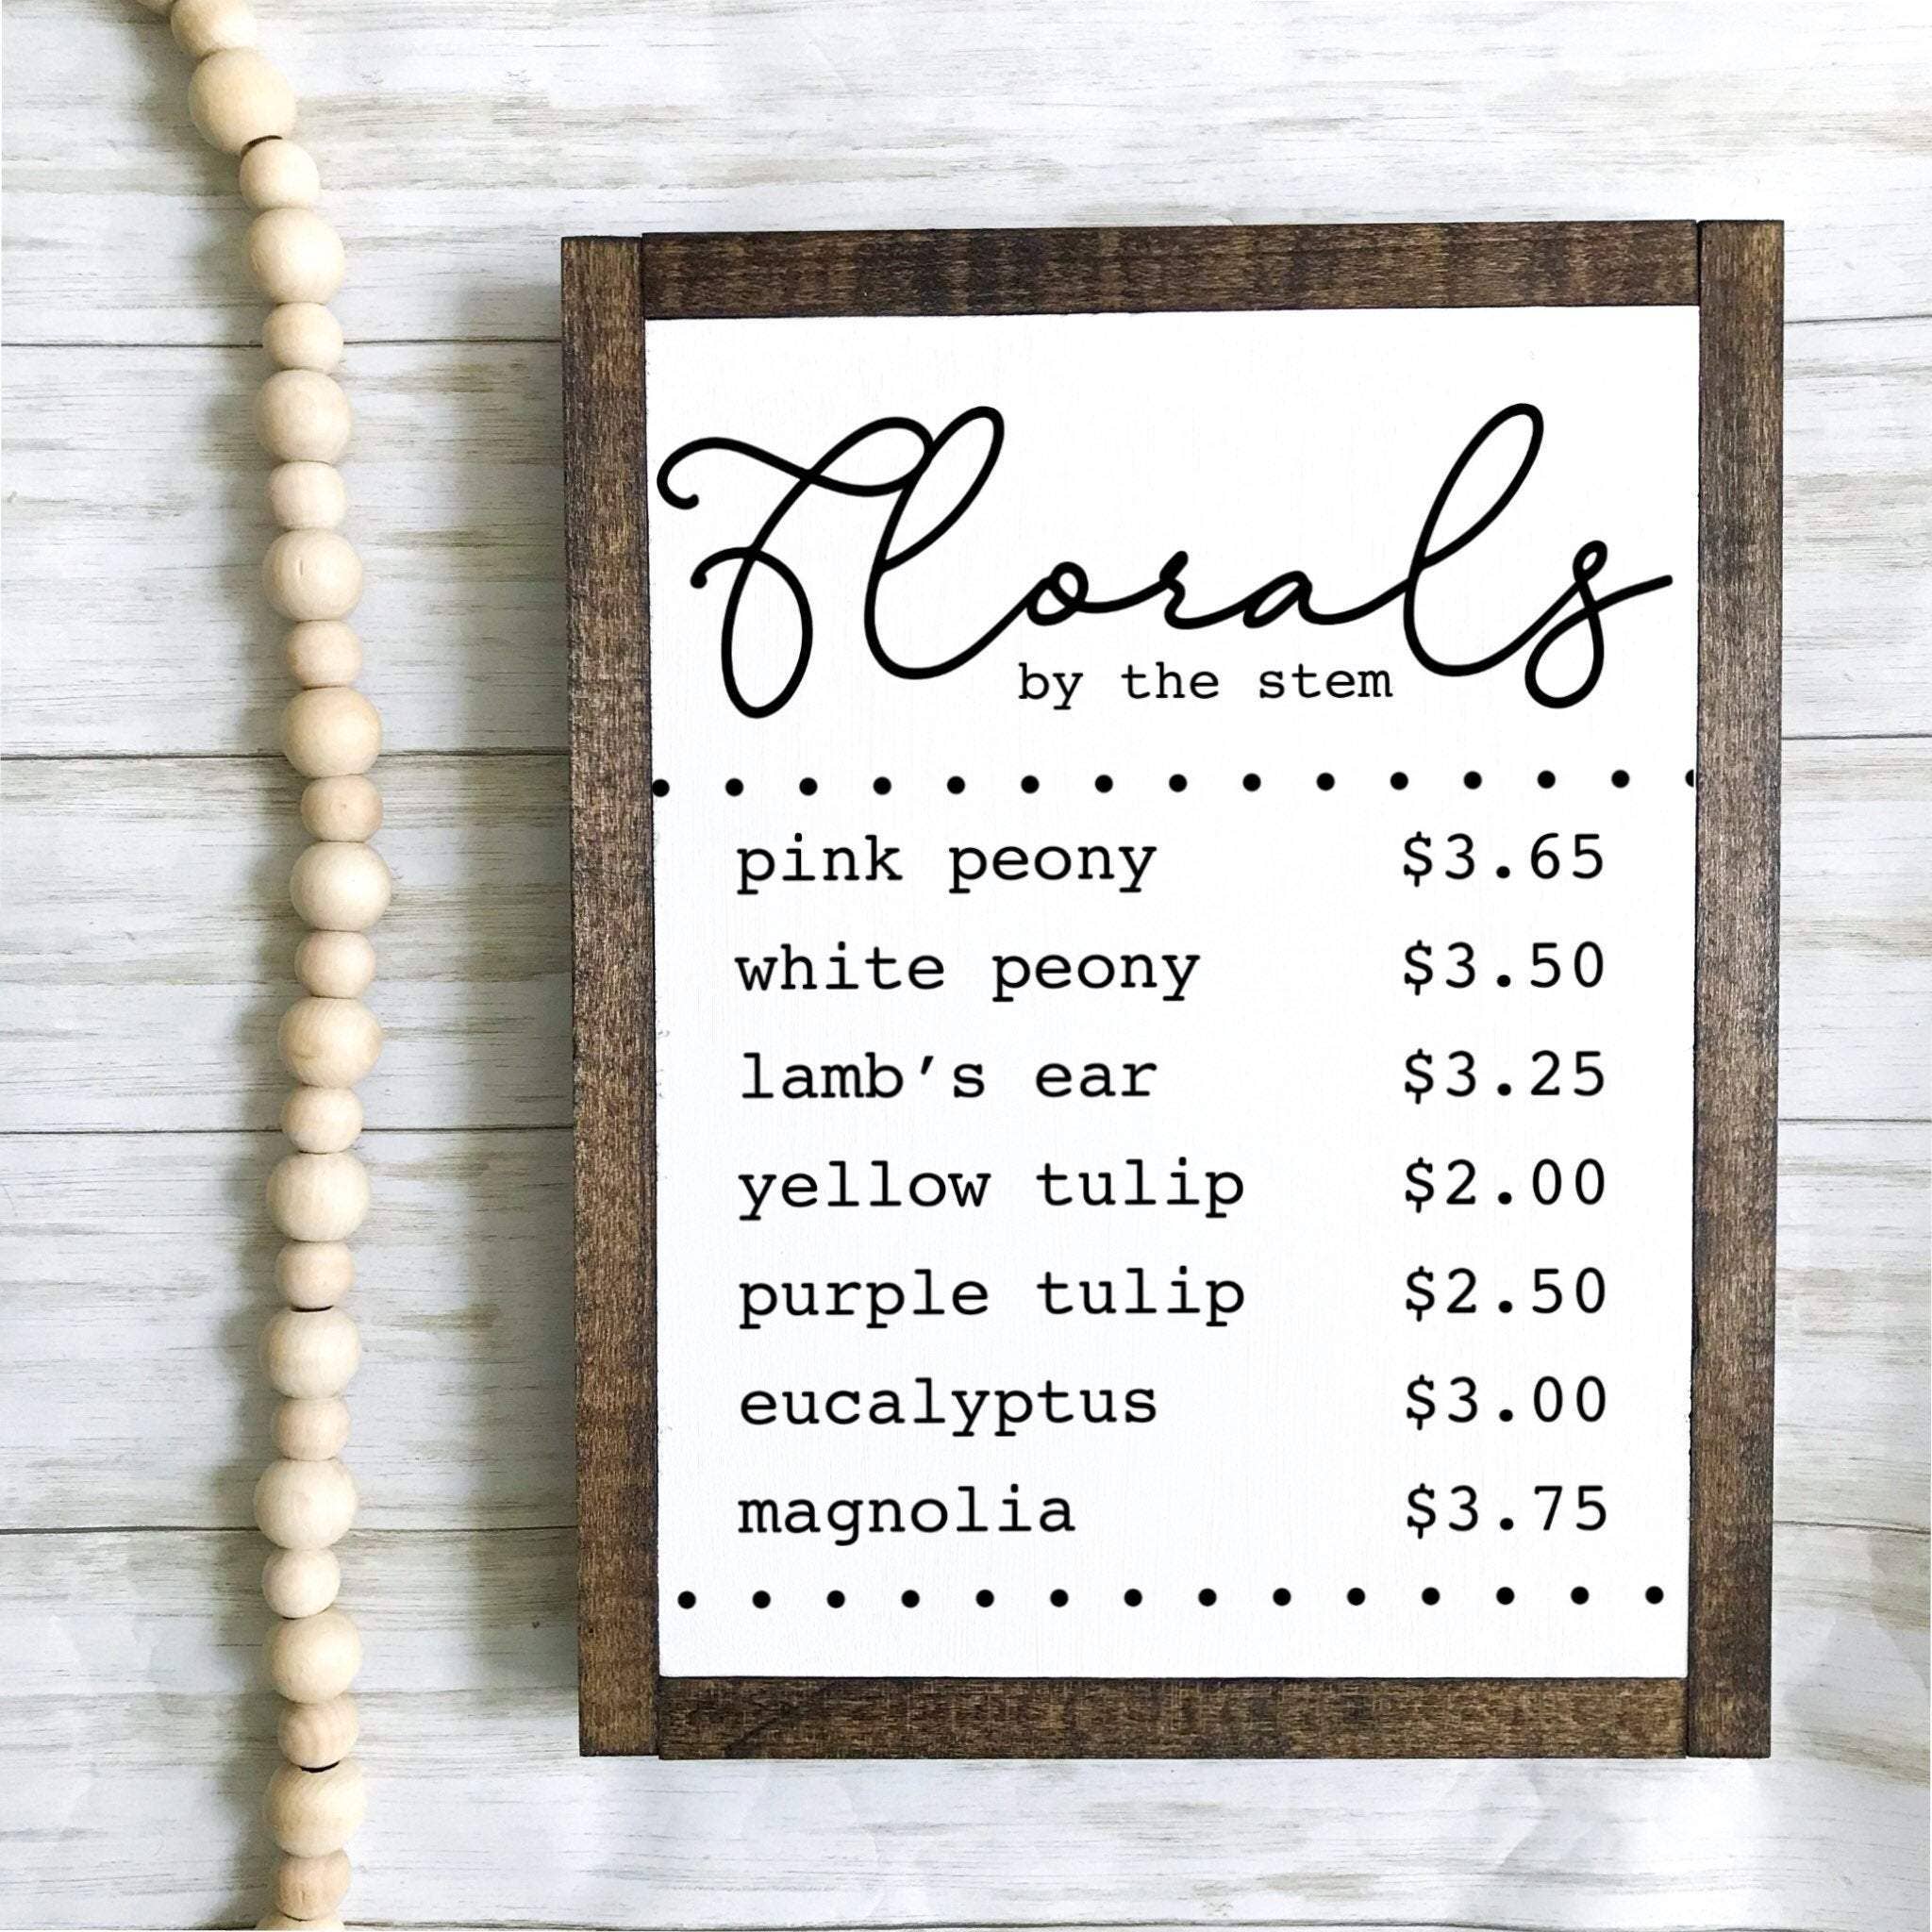 Florals
by the stem
pink peony $3.65
white peony $3.50
lamb's ear $3.25
yellow tulip $2.00
purple tulip $2.50
eucalyptus $3.00
magnolia $3.75